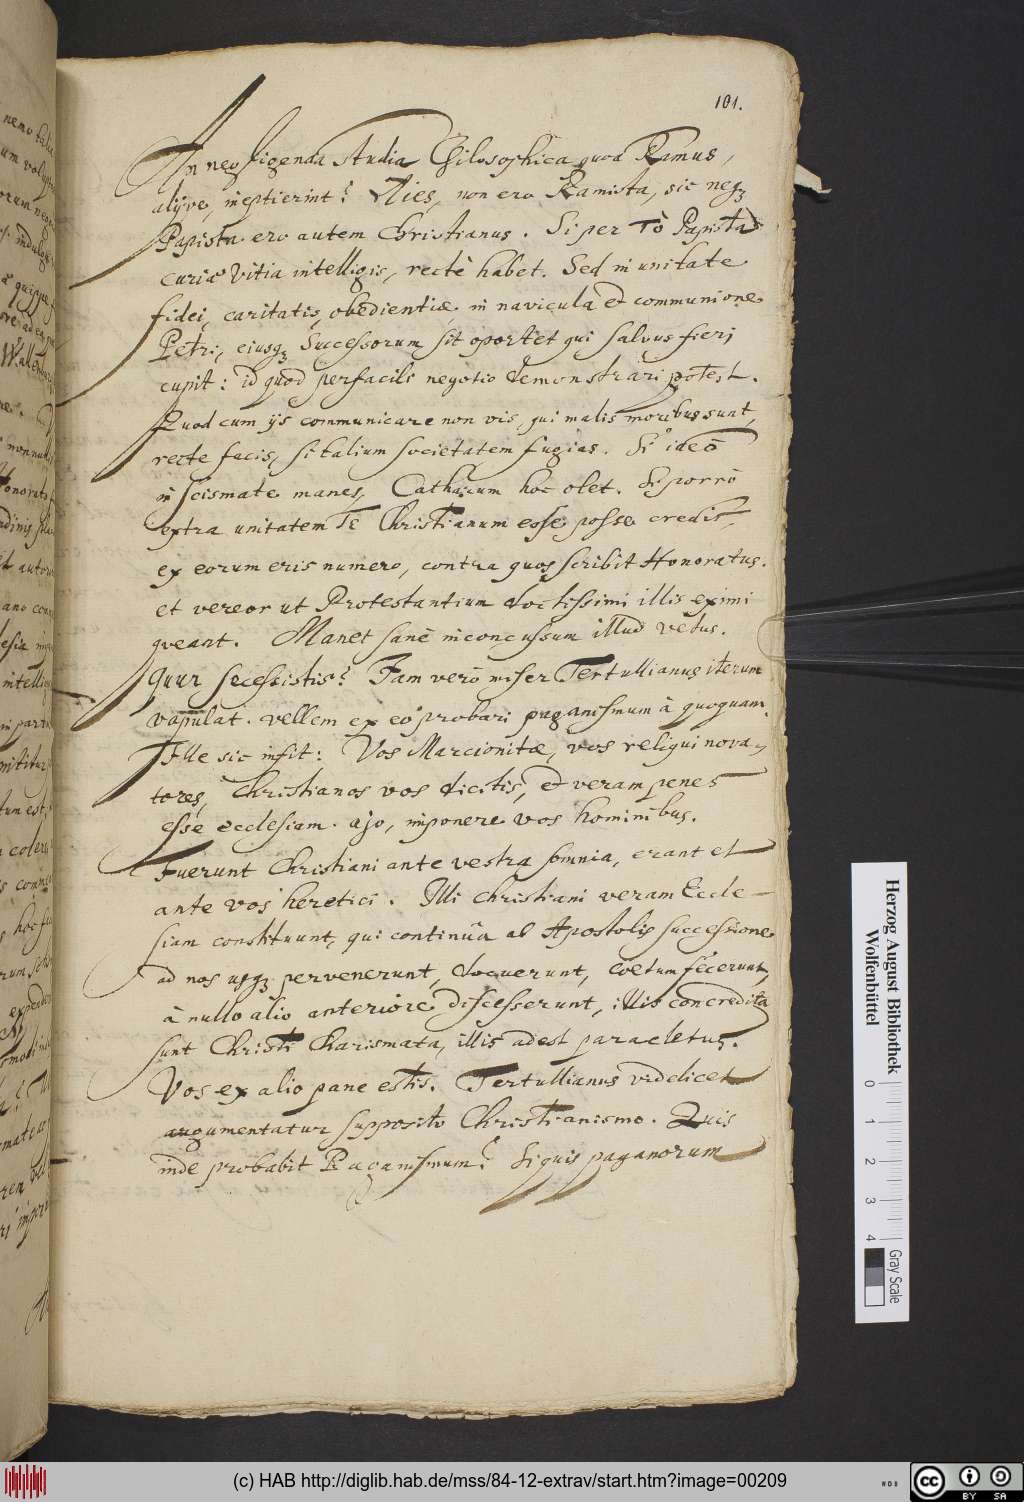 101.
An negligenda studia Philosophica quod Ramus,
alijve, ineptierint? Ais, non ero Ramista, sic neqꝫ
Papista ero autem Christianus. Si per Tò Papista
curiæ vitia intelligis, rectè habet. Sed in unitate
fidei, caritatis, obedientiæ in navicula et communione
Petri, ejusqꝫ Successorum sit oportet qui salvus fieri
cupit: id quod perfacili negotio demonstrari potest.
Quod cum ijs communicare non vis, qui malis moribus sunt,
recte facis, si talium societatem fugias. Si ideò
in scismate manes, Catharum hoc olet. Si porrò
extra unitatem Te Christianum esse posse credis,
ex eorum eris numero, contra quos scribit Honoratus.
et vereor ut Protestantium doctissimi illis eximi
queant. Manet sanè inconcussum illud vetus.
Quur secessistis? Jam verò miser Tertullianus iterum
vapulat. vellem ex eo probari paganismum à quoquam.
Ille sic insit: Vos Marcionitæ, vos reliqui nova-
tores, Christianos vos dicitis, et veram penes
esse ecclesiam. ajo, imponere vos hominibus.
Fuerunt Christiani ante vestra somnia, erant et
ante vos heretici. Illi Christiani veram Eccle-
siam constituunt, qui continua ab Apostolis successione
ad nos usqꝫ pervenerunt, docuerunt, coetum fecerunt,
à nullo alio anteriore discesserunt, illis concredita
sunt Christi Charismata, illis adest paracletus.
Vos ex alio pane estis. Tertullianus videlicet
argumentatur supposito Christianismo. Quis
inde probabit Paganismum? Siquis paganorum
Herzog August Bibliothek
Wolfenbüttel
0 1 2 3 4
Gray Scale
(c) HAB http://diglib.hab.de/mss/84-12-extrav/start.htm?image=00209
cc BY SA